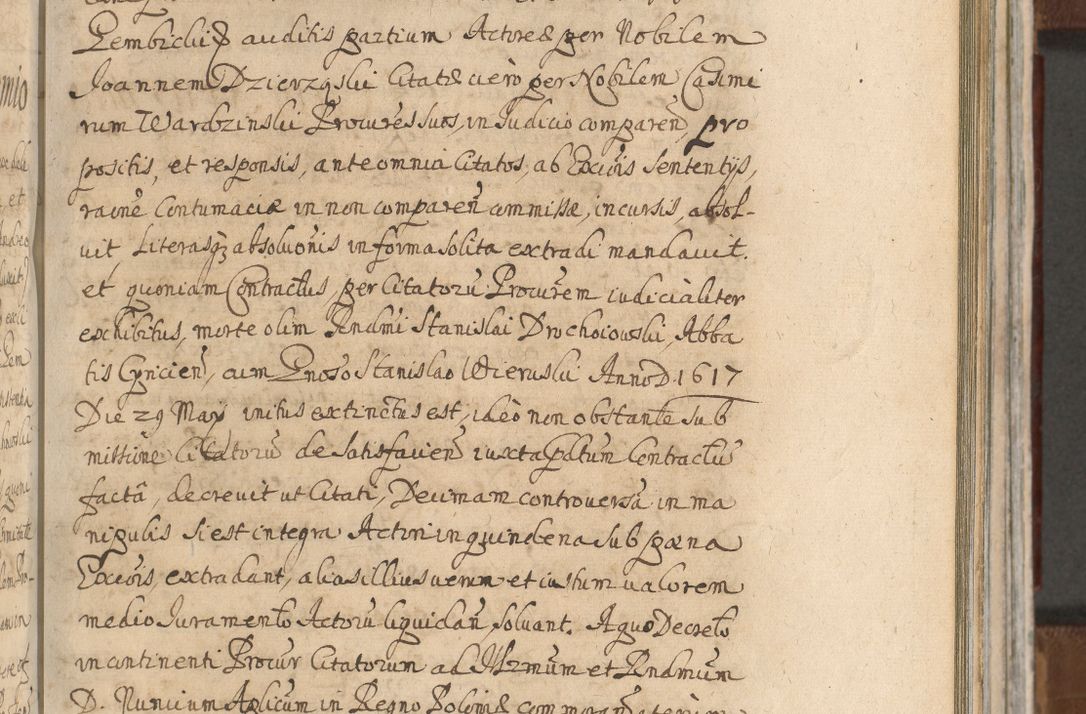 Gembicki& auditis partium Actore& per Nobilem
Joannem Dzierzgski Citat& vero per Nobilem Casimi
rum Wardzinski Procures suos, in Judicio comparen pro
positis, et responsis, ante omnia Citatos, ab Excōis Sententijs,
raōne Contumaciæ in non comparen commissæ, incursis, absol-
vit Literasq absoluōnis in forma solita extradi mandavit.
et quoniam Contractus, per Citatorū Procurem iudicialiter
exhibitus, morte olim Rndmi Stanislai Drochoiowski, Abba
tis Tyncien, cum Gnoso Stanislao Wieruski Anno D. 1617
Die 29 Maÿ initus extinctus est, ideò non obstante sub
missiōne Citatorū de satisfacien iuxta pdtum Contractus
factâ, decrevit ut Citati, Decimam controversā in ma
nipulis si est integra Actori in quindena sub pæna
Excōis, extradant, alias illius verum et iustum valorem
medio Juramento Actorū liquidan, solvant. A quo Decreto
in continenti Procur Citatorum ad Illrmum et Rndmum
D. Nuncium Aplicum in Regno Poloniæ